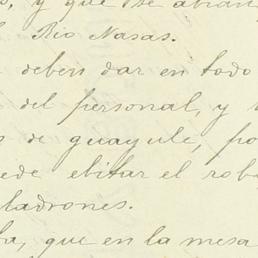 y que se abran
Rio Nasas.
deben dar en todo
del personal, y
de guayule, po
ede ebitar el rob
ladrones.
ba, que en la mesa